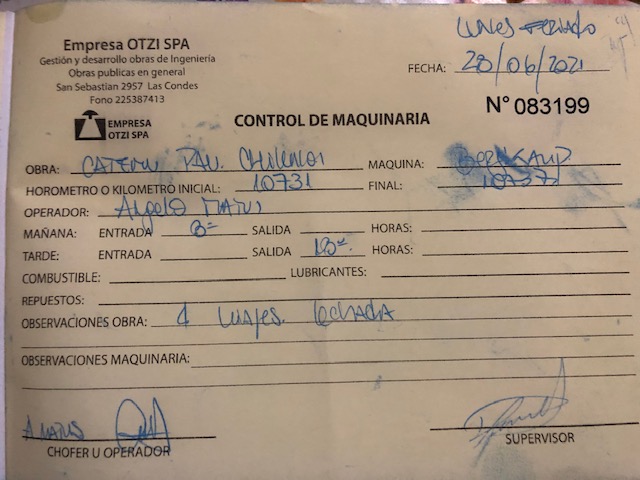 Empresa OTZI SPA
Gestión y desarrollo obras de Ingeniería
Obras publicas en general
San Sebastián 2957 Las Condes
Fono 225387413
EMPRESA
OTZI SPA
CONTROL DE MAQUINARIA
Lunes Feriado
FECHA: 28/06/2021
N° 083199
OBRA: MAQUINA:
HOROMETRO O KILOMETRO INICIAL: 10731 FINAL:
OPERADOR:
MAÑANA: ENTRADA 8 SALIDA HORAS:
TARDE: ENTRADA SALIDA 18 HORAS:
COMBUSTIBLE: LUBRICANTES:
REPUESTOS:
OBSERVACIONES OBRA: 1 viajes lechada
OBSERVACIONES MAQUINARIA:
CHOFER U OPERADOR
SUPERVISOR